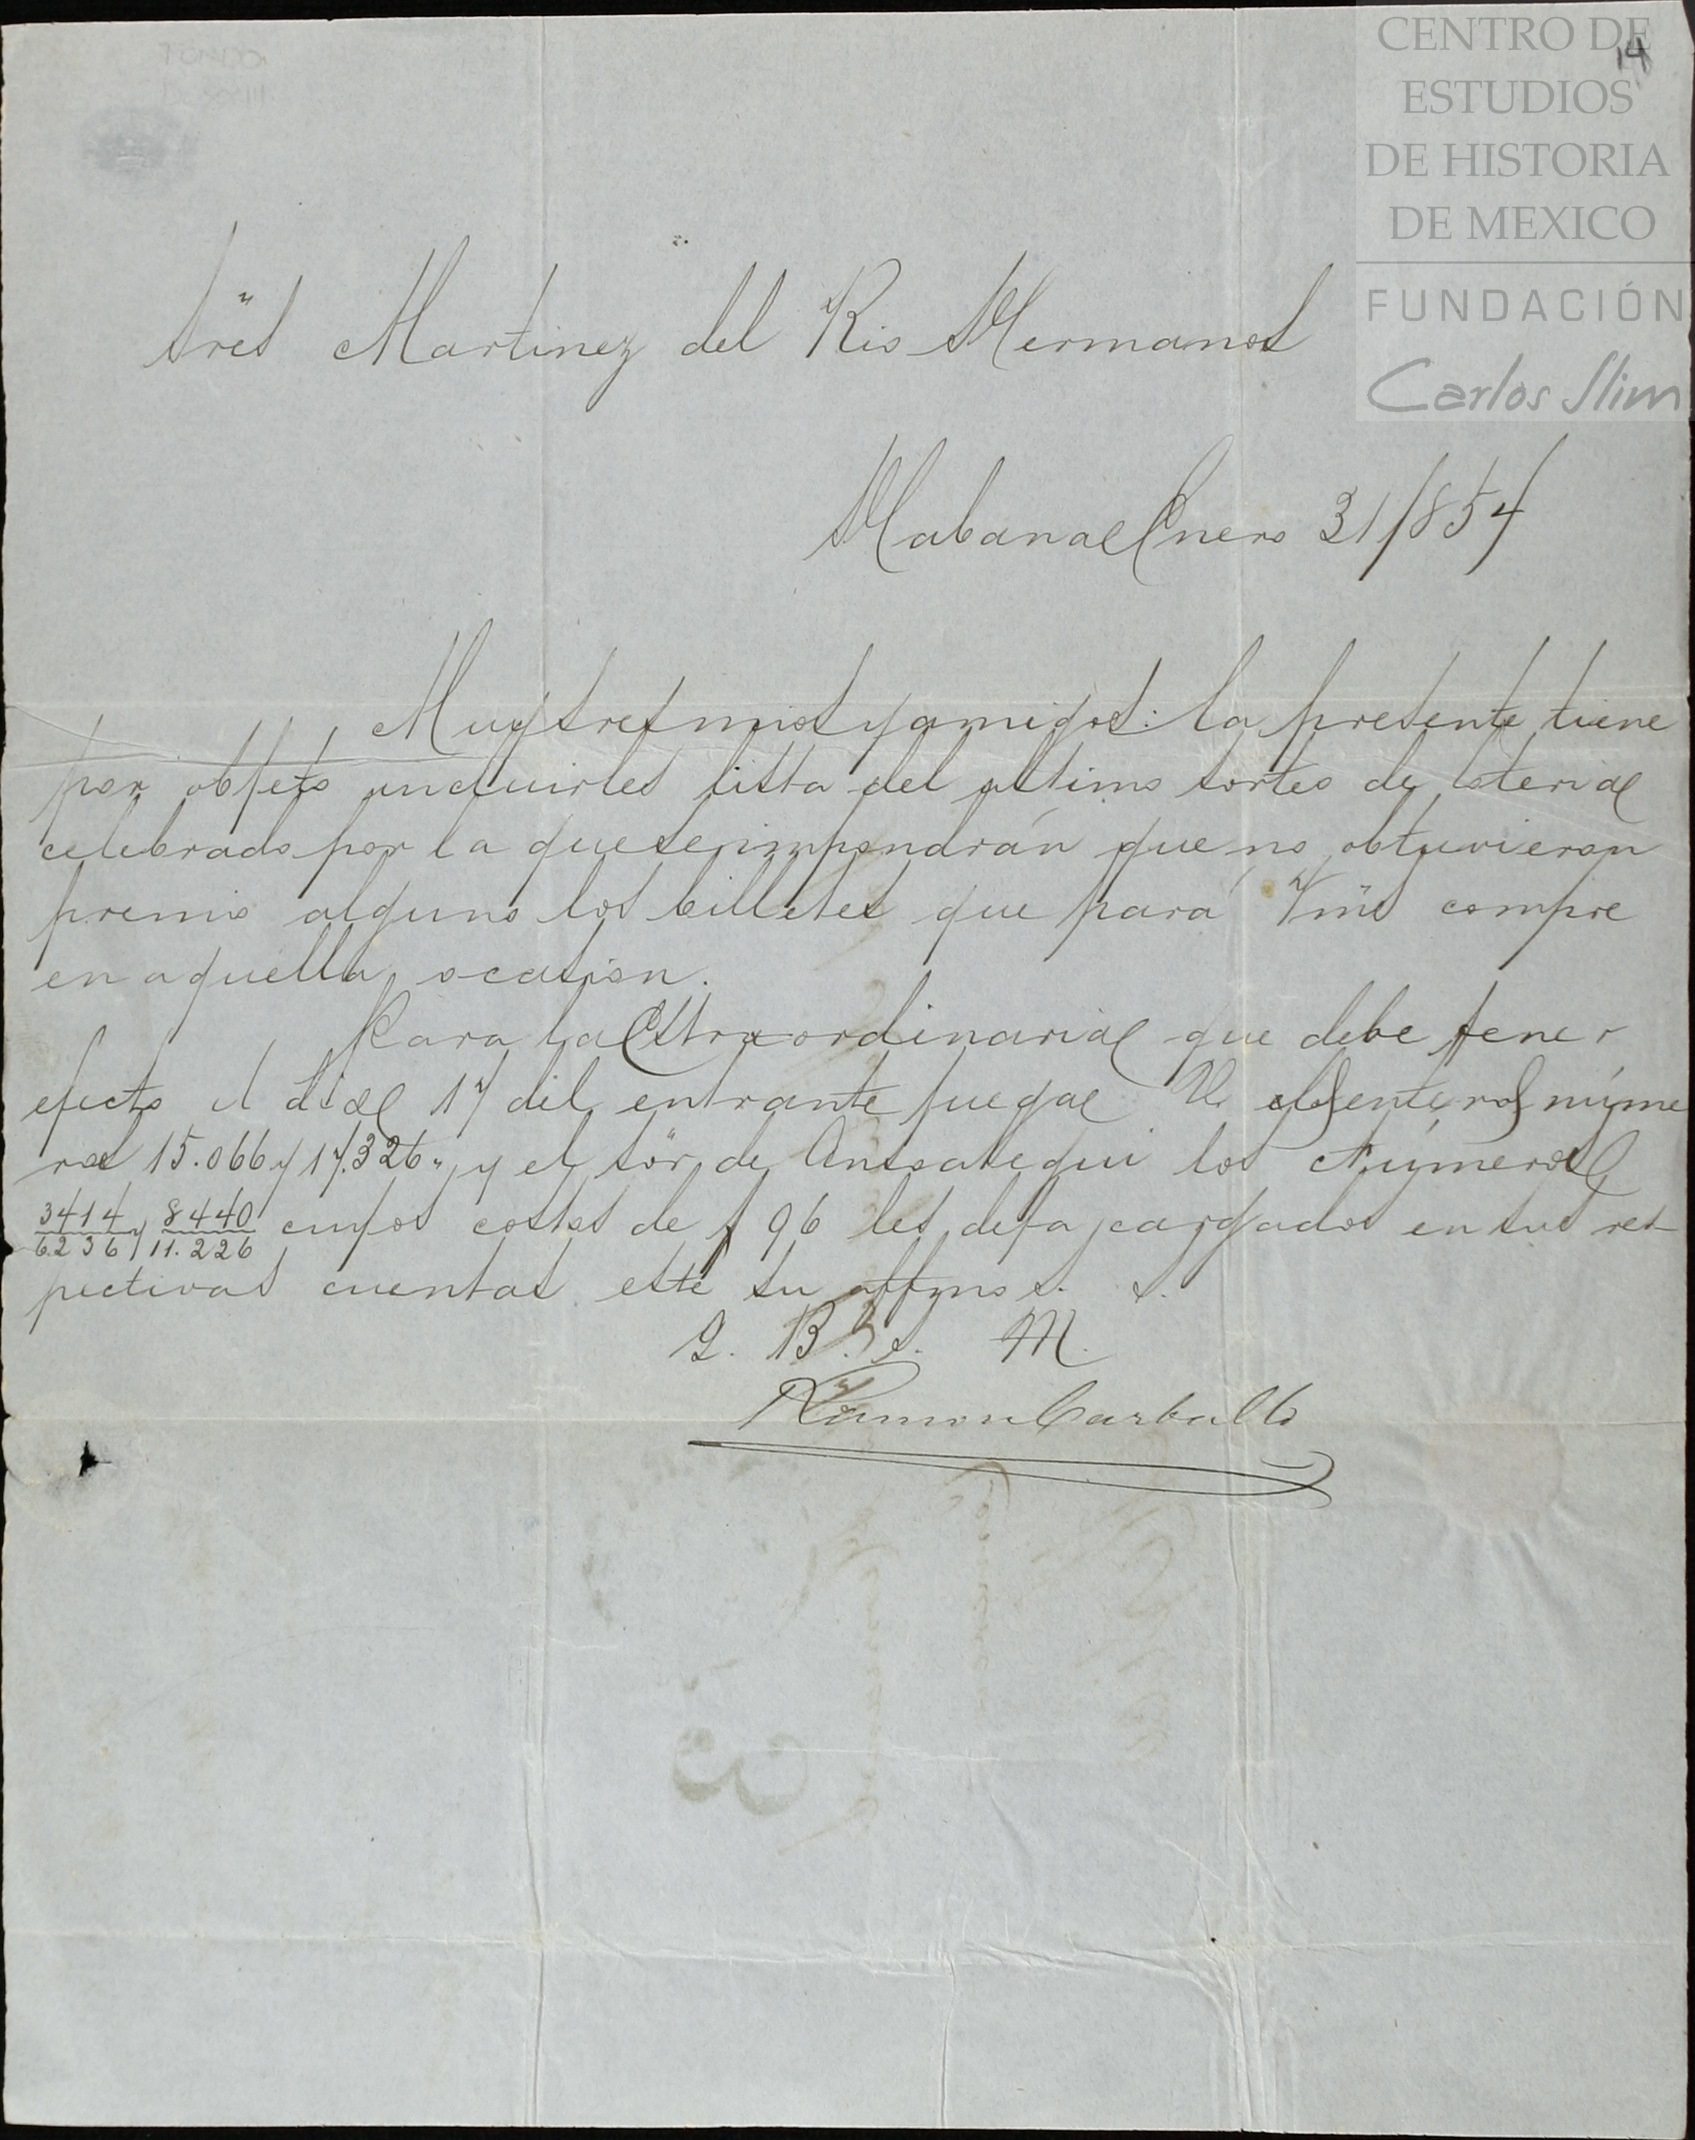 14
CENTRO DE
ESTUDIOS
DE HISTORIA
DE MEXICO
FUNDACIÓN
Carlos Slim
Sres Martinez del Rio Hermanos
Habana Enero 31/854
Muy Sres mios y amigos: la presente tiene
por objeto incluirles lista del ultimo sorteo de loteria
celebrado por la que se impondrán que no obtuvieron
premio alguno los billetes que para Vms compre
en aquella ocasion.
Para la Estraordinaria que debe tener
efecto el dia 17 del entrante juega V. los enteros núme
ros 15.066 y 17.326 y el Sor de Ansoategui los Números
3414/6236 y 8440/11.226 cuyos costos de $ 96 les deja cargados en sus res
pectivas cuentas este su affmo s. s.
Q. B. s. M.
Ramon Carballo